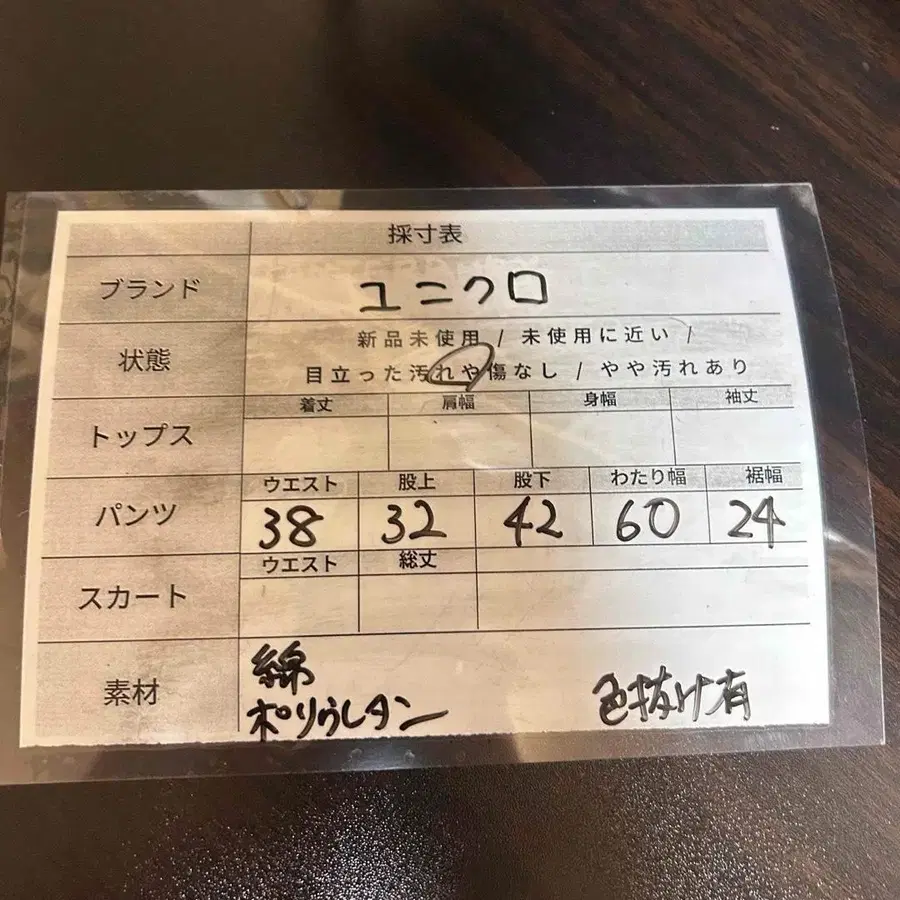 採寸表
ブランド ユニクロ
状態 新品未使用 / 未使用に近い /
目立った汚れや傷なし / やや汚れあり
着丈 肩幅 身幅 袖丈
トップス
ウエスト 股上 股下 わたり幅 裾幅
パンツ 38 32 42 60 24
ウエスト 総丈
スカート
素材 綿
ポリウレタン 色抜け有